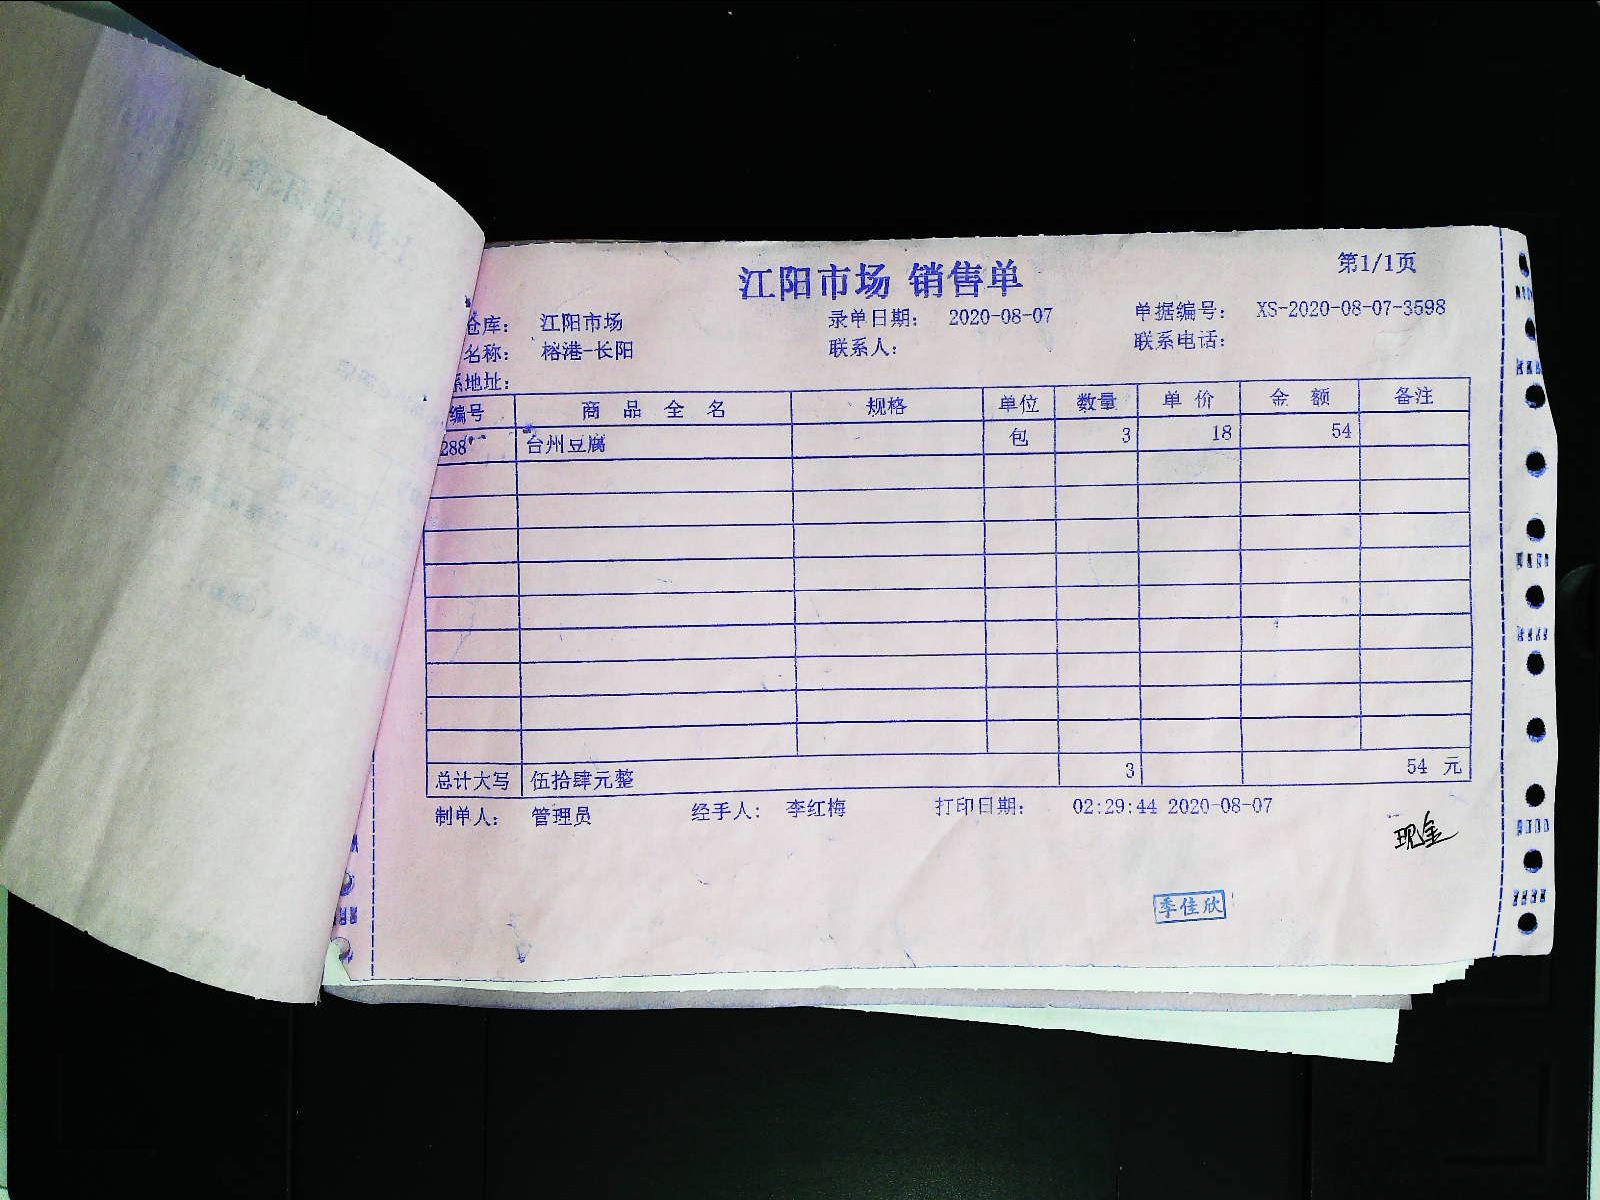 江阳市场 销售单
第1/1页
仓库： 江阳市场 录单日期： 2020-08-07 单据编号： XS-2020-08-07-3598
名称： 榕港-长阳 联系人： 联系电话：
系地址：
编号 商品全名 规格 单位 数量 单价 金额 备注
288 台州豆腐 包 3 18 54
总计大写 伍拾肆元整 3 54 元
制单人： 管理员 经手人： 李红梅 打印日期： 02:29:44 2020-08-07
现金
季佳欣